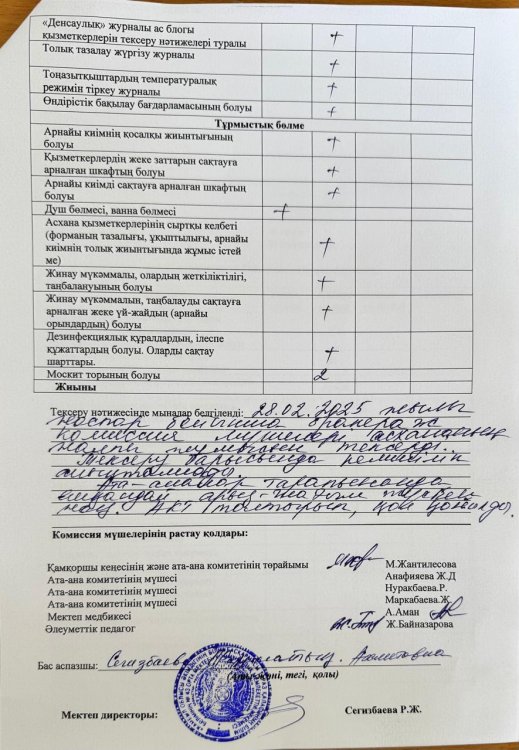 «Денсаулық» журналы ас блогы
қызметкерлерін тексеру нәтижелері туралы +
Толық тазалау жүргізу журналы +
Тоңазытқыштардың температуралық
режимін тіркеу журналы +
Өндірістік бақылау бағдарламасының болуы +
Тұрмыстық бөлме
Арнайы киімнің қосалқы жиынтығының
болуы +
Қызметкерлердің жеке заттарын сақтауға
арналған шкафтың болуы +
Арнайы киімді сақтауға арналған шкафтың
болуы +
Душ бөлмесі, ванна бөлмесі +
Асхана қызметкерлерінің сыртқы келбеті
(форманың тазалығы, ұқыптылығы, арнайы
киімнің толық жиынтығында жұмыс істей
ме) +
Жинау мүкәммалы, олардың жеткіліктілігі,
таңбалануының болуы +
Жинау мүкәммалын, таңбалауды сақтауға
арналған жеке үй-жайдың (арнайы
орындардың) болуы +
Дезинфекциялық құралдардың, ілеспе
құжаттардың болуы. Оларды сақтау
шарттары. +
Москит торының болуы 2
Жиыны
Тексеру нәтижесінде мыналар белгіленді: 28.02.2025 жылы
жоспар бойынша
комиссия мүшелері асхананың
тексерді.
Тексеру барысында
Ата-аналар тарапынан
арыз-шағым
АКТ толтырып, қол қойылды.
Комиссия мүшелерінің растау қолдары:
Қамқоршы кеңесінің және ата-ана комитетінің төрайымы М.Жантилесова
Ата-ана комитетінің мүшесі Анафияева Ж.Д
Ата-ана комитетінің мүшесі Нуракбаева.Р.
Ата-ана комитетінің мүшесі Маркабаева.Ж.
Мектеп медбикесі А.Аман
Әлеуметтік педагог Ж.Байназарова
Бас аспазшы: Сегизбаева Ахметовна
(Аты-жөні, тегі, қолы)
Мектеп директоры: Сегизбаева Р.Ж.